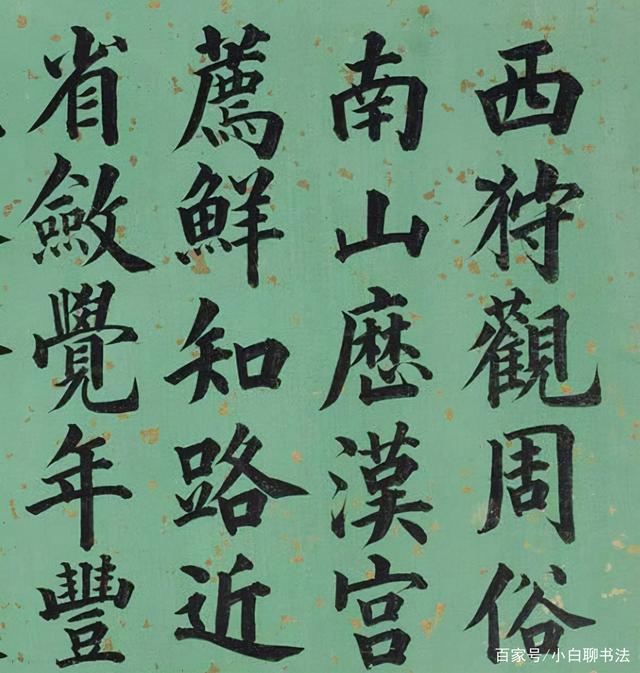 西狩觀周俗
南山歷漢宮
薦鮮知路近
省斂覺年豐
百家号/小白聊书法